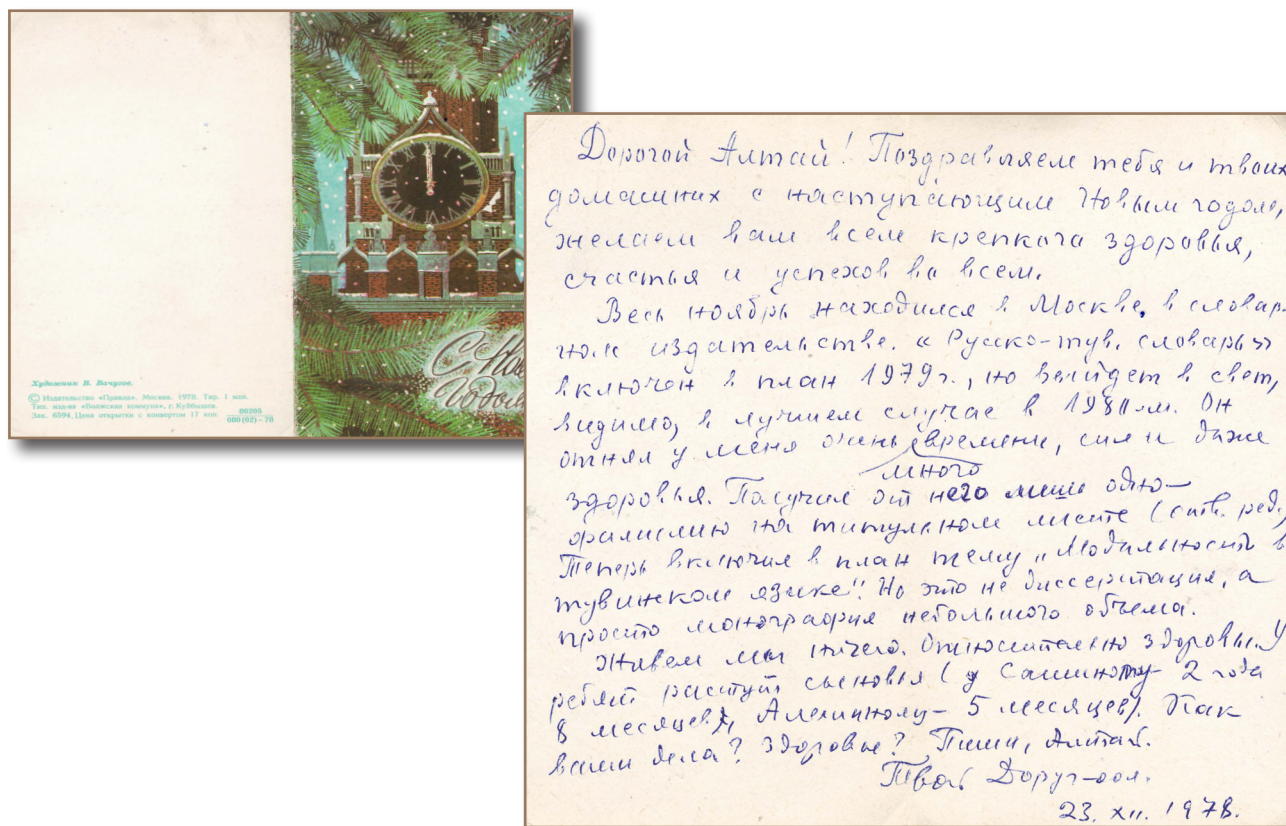 Художник В. Вачугов.
© Издательство «Правда». Москва. 1978. Тир. 1 млн.
Тип. изд-ва «Волжская коммуна», г. Куйбышев.
Зак. 6594. Цена открытки с конвертом 17 коп.
00205
080(02)–78
С Новым
Годом
Дорогой Алтай! Поздравляем тебя и твоих
домашних с наступающим Новым годом,
желаем вам всем крепкого здоровья,
счастья и успехов во всем.
Весь ноябрь находился в Москве, в словар-
ном издательстве. „Русско-тув. словарь”
включен в план 1979 г., но выйдет в свет,
видимо, в лучшем случае в 1980-м. Он
отнял у меня очень много времени, сил и даже
здоровья. Получил от него лишь одно-
фамилию на титульном листе (отв. ред.)
Теперь включил в план тему „Модальность в
тувинском языке”. Но это не диссертация, а
просто монография небольшого объема.
Живем мы ничего. Относительно здоровы. У
ребят растут сыновья (у Сашиному 2 года
8 месяцев, Алешиному – 5 месяцев). Как
ваши дела? Здоровье? Пиши, Алтай.
Твой Доруг-оол.
23. XII. 1978.